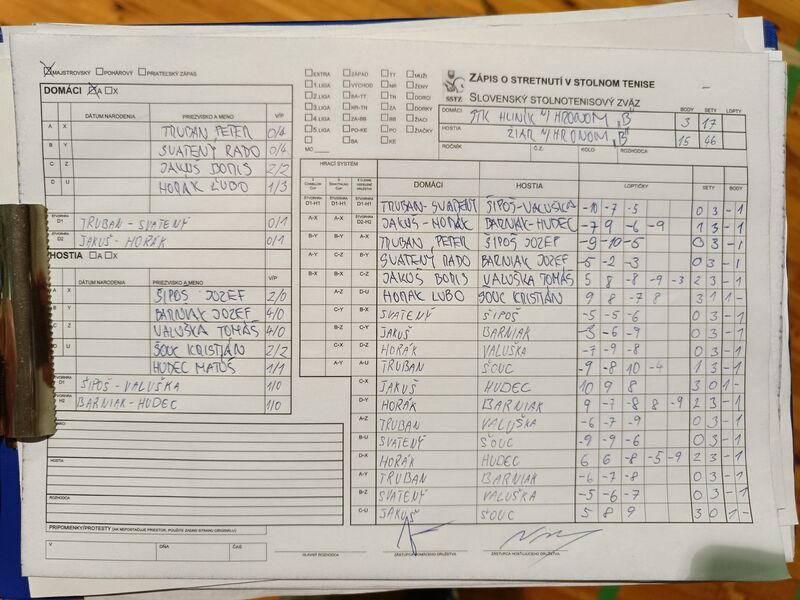 MAJSTROVSKÝ POHÁROVÝ PRIATEĽSKÝ ZÁPAS
DOMÁCI A X
DÁTUM NARODENIA PRIEZVISKO A MENO V/P
A X TRUBAN PETER 0/4
B Y SVATENÝ RADO 0/4
C Z JAKUŠ BORIS 2/2
D U HORÁK ĽUBO 1/3
ŠTVORHRA D1 TRUBAN - SVATENÝ 0/1
ŠTVORHRA D2 JAKUŠ - HORÁK 0/1
HOSTIA A X
DÁTUM NARODENIA PRIEZVISKO A MENO V/P
X ŠIPOŠ JOZEF 2/0
Y BARNIAK JOZEF 4/0
Z VALUŠKA TOMÁŠ 4/0
U ŠOUC KRISTIÁN 2/2
HUDEC MATÚŠ 1/1
ŠIPOŠ - VALUŠKA 1/0
H2 BARNIAK - HUDEC 1/0
HOSTIA
ROZHODCA
PRIPOMIENKY/PROTESTY (AK NEPOSTAČUJE PRIESTOR, POUŽITE ZADNÚ STRANU ORIGINÁLU)
V DŇA ČAS
EXTRA ZÁPAD TT MUŽI
1.LIGA VÝCHOD NR ŽENY
2.LIGA BA-TT TN DORCI
3.LIGA NR-TN ZA DORKY
4.LIGA ZA-BB BB ŽIACI
5.LIGA PO-KE PO ŽIAČKY
BA KE
MO
SSTZ
ZÁPIS O STRETNUTÍ V STOLNOM TENISE
SLOVENSKÝ STOLNOTENISOVÝ ZVÄZ
BODY SETY LOPTY
DOMÁCI STK HLINÍK N/HRONOM "B" 3 17
HOSTIA ŽIAR N/HRONOM "B" 15 46
ROČNÍK Č.Z. KOLO ROZHODCA
HRACÍ SYSTÉM
DOMÁCI HOSTIA LOPTIČKY SETY BODY
D1-H1 D1-H1 TRUBAN - SVATENÝ ŠIPOŠ - VALUŠKA -10 -7 -5 0 3 - 1
A-X A-X JAKUŠ - HORÁK BARNIAK - HUDEC -7 9 -6 -9 1 3 - 1
B-Y B-Y A-X TRUBAN, PETER ŠIPOŠ JOZEF -9 -10 -5 0 3 - 1
A-Y C-Z B-Y SVATENÝ RADO BARNIAK JOZEF -5 -2 -3 0 3 - 1
B-X B-X C-Z JAKUŠ BORIS VALUŠKA TOMÁŠ 5 8 -8 -9 -3 2 3 - 1
A-Z D-U HORÁK ĽUBO ŠOUC KRISTIÁN 9 8 -7 8 3 1 1 -
C-Y B-X SVATENÝ ŠIPOŠ -5 -5 -6 0 3 - 1
B-Z C-Y JAKUŠ BARNIAK -3 -6 -9 0 3 - 1
C-X D-Z HORÁK VALUŠKA -7 -9 -8 0 3 - 1
A-Y A-U TRUBAN ŠOUC -9 -8 10 -4 1 3 - 1
C-X JAKUŠ HUDEC 10 9 8 3 0 1 -
D-Y HORÁK BARNIAK 9 -7 -8 8 -9 2 3 - 1
A-Z TRUBAN VALUŠKA -6 -7 -9 0 3 - 1
B-U SVATENÝ ŠOUC -9 -9 -6 0 3 - 1
D-X HORÁK HUDEC 6 6 -8 -5 -9 2 3 - 1
A-Y TRUBAN BARNIAK -6 -7 -8 0 3 - 1
B-Z SVATENÝ VALUŠKA -5 -6 -7 0 3 - 1
C-U JAKUŠ ŠOUC 5 8 9 3 0 1 -
HLAVNÝ ROZHODCA ZÁSTUPCA DOMÁCEHO DRUŽSTVA ZÁSTUPCA HOSŤUJÚCEHO DRUŽSTVA